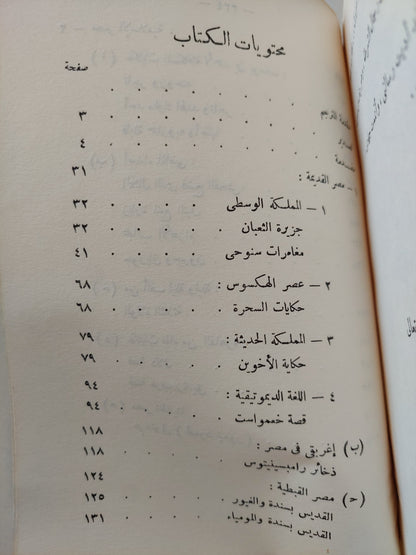 محتويات الكتاب
صفحة
مقدمة المترجم . . . . . . . ٣
تصدير . . . . . . . ٤
مقدمة
مصر القديمة : ٣١
١ – المملكة الوسطى . . . ٣٢
جزيرة الثعبان . . . . ٣٢
مغامرات سنوحى . . . . ٤١
٢ – عصر الهكسوس . . . . ٦٨
حكايات السحرة . . . . ٦٨
٣ – المملكة الحديثة : . . . . ٧٩
حكاية الأخوين . . . . ٧٩
٤ – اللغة الديموتيقية : . . . ٩٤
قصة خعمواست . . . . ٩٤
(ب) إغريق فى مصر : . . . . ١١٨
ذخائر رامبسينيتوس . . . . ١١٨
(ح) مصر القبطية : . . . . ١٢٤
القديس بسندة والغيور . . . . ١٢٥
القديس بسندة والمومياء . . . ١٣١
تعالى